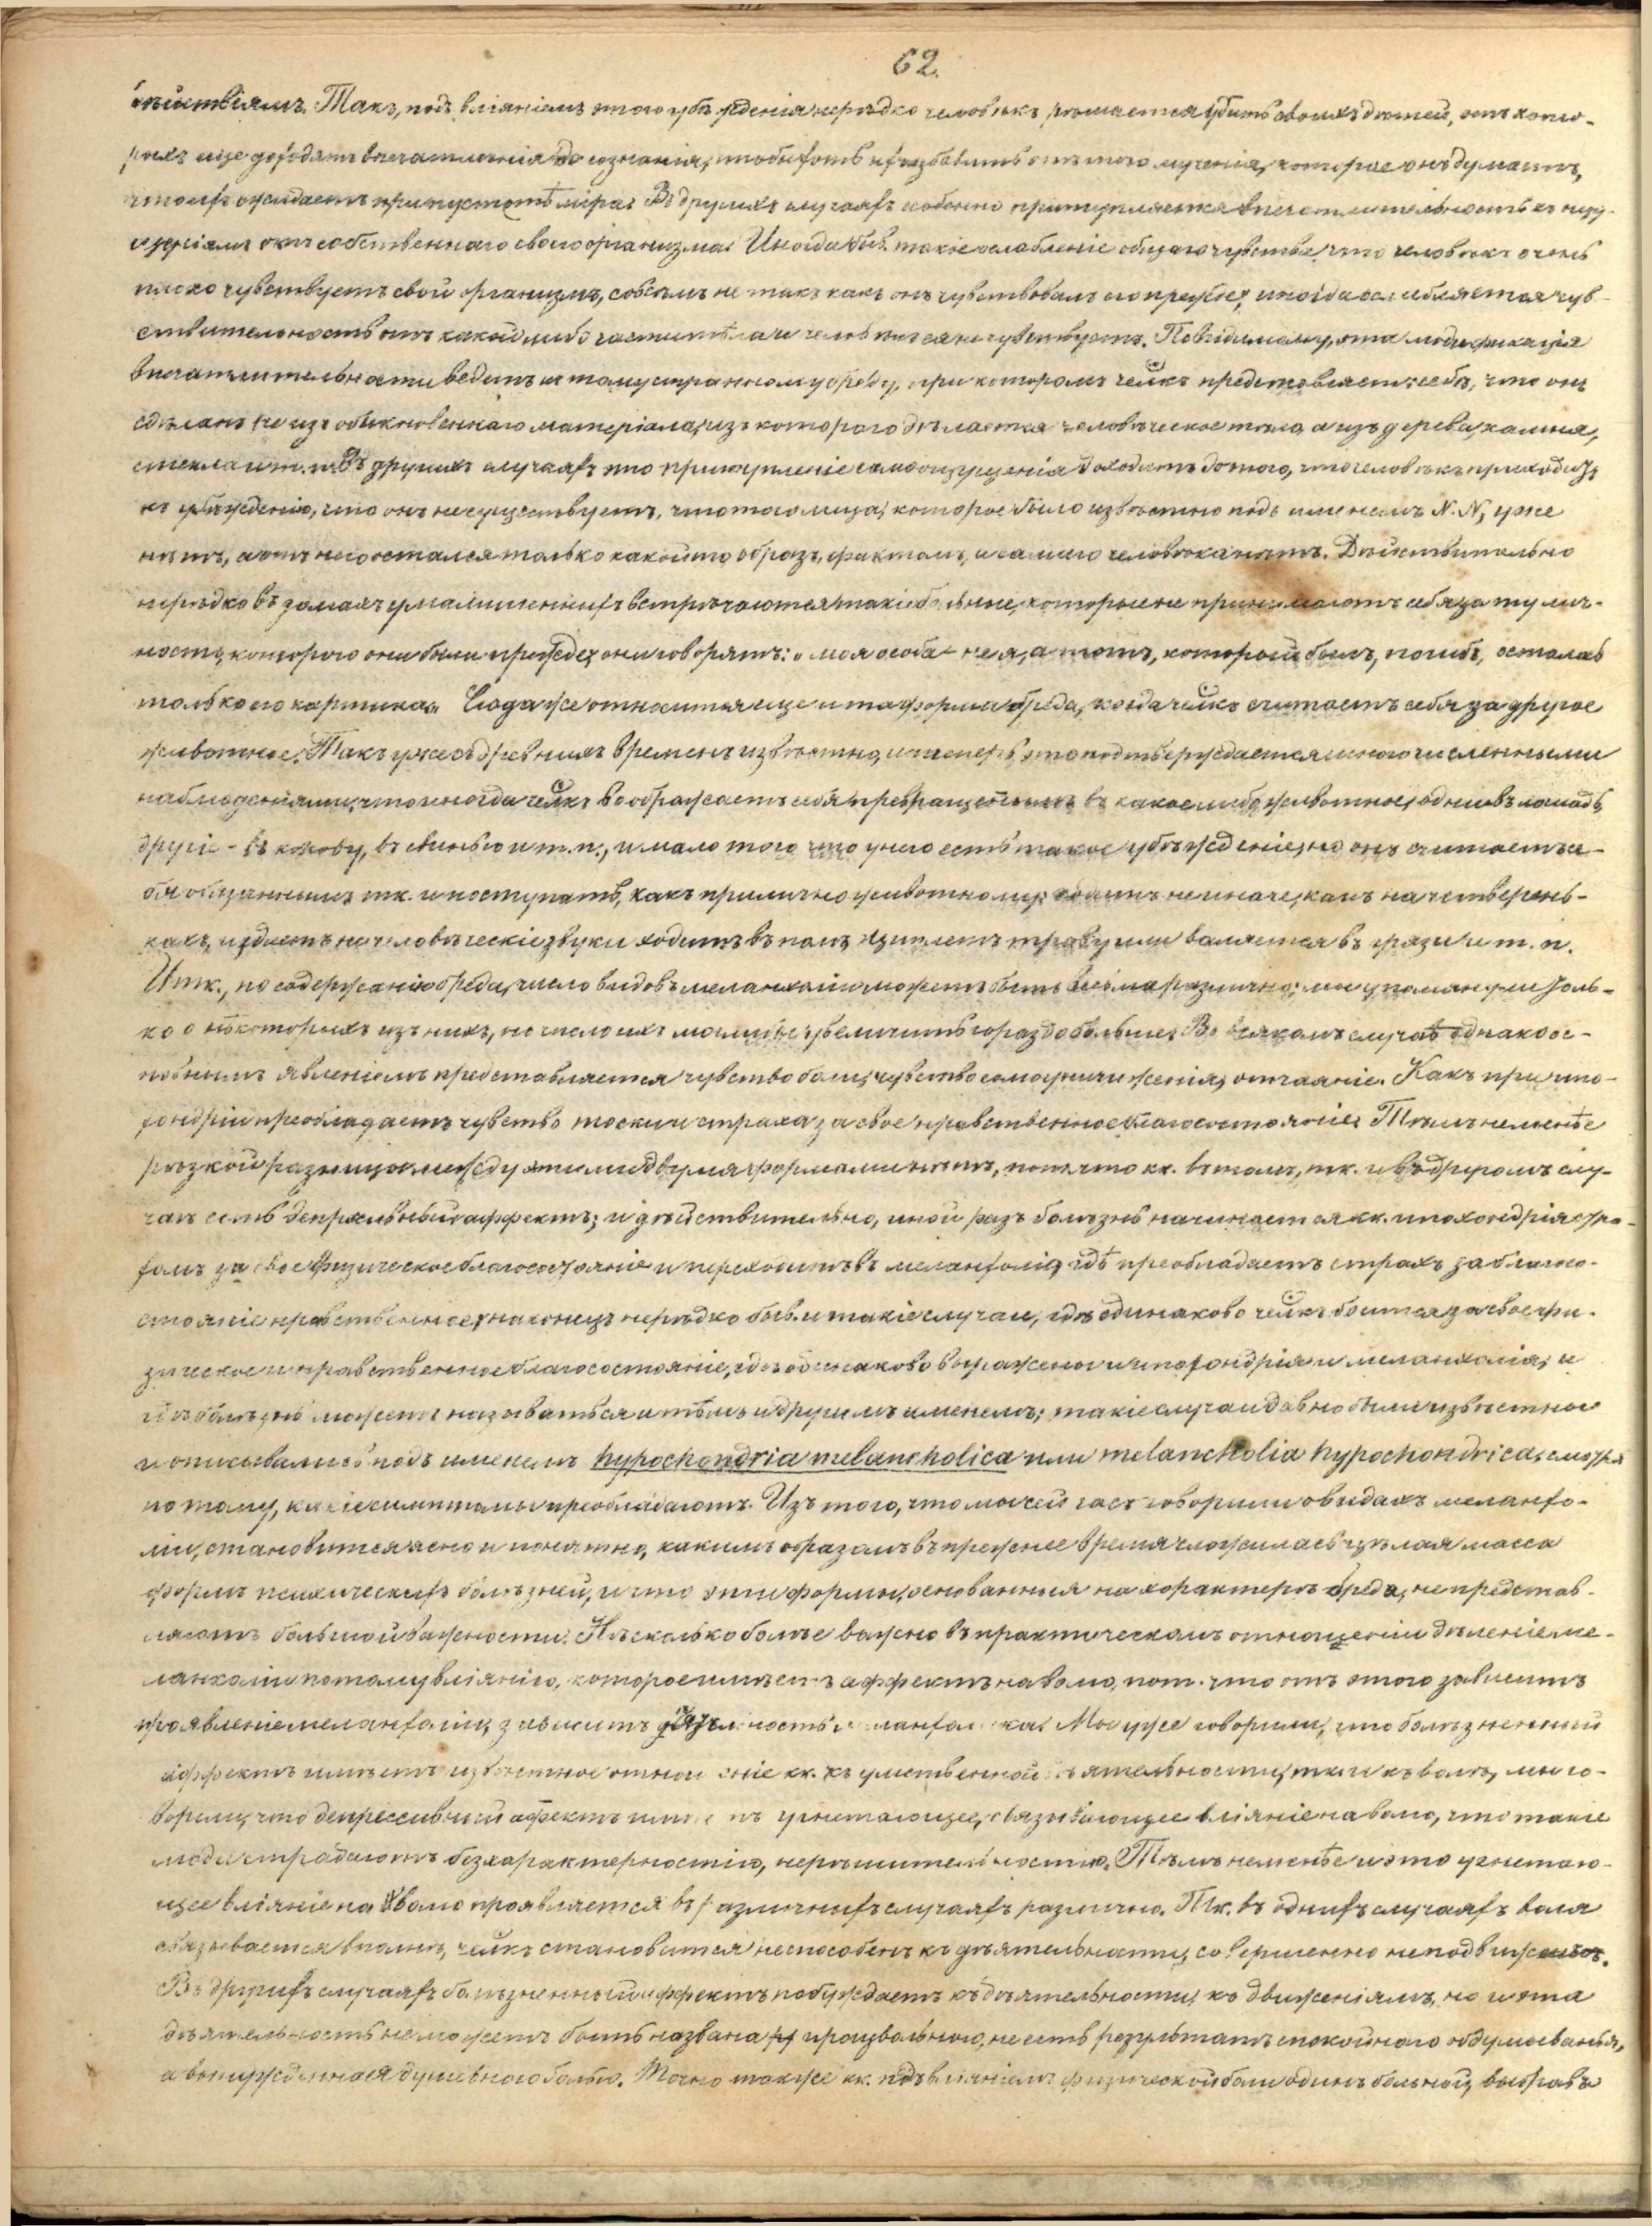 62.
дѣйствіямъ. Такъ, подъ вліяніемъ этого убѣжденія нерѣдко человѣкъ рѣшается убить своихъ дѣтей, отъ кото-
рыхъ еще доходятъ впечатлѣнія до сознанія, чтобы хоть ихъ избавить отъ того мученія, которое онъ думаетъ,
что ихъ ожидаетъ при пустотѣ міра. Въ другихъ случаяхъ особенно притупляется впечатлительность къ ощу-
щеніямъ отъ собственнаго своего организма. Иногда быв. такое ослабленіе общаго чувства, что человѣкъ очень
плохо чувствуетъ свой организмъ, совсѣмъ не такъ какъ онъ чувствовалъ его прежде; иногда ослабляется чув-
ствительность отъ какой либо части тѣла и человѣкъ ея не чувствуетъ. Повидимому, эта модификація
впечатлительности ведетъ къ тому странному бреду, при которомъ челкъ представляетъ себѣ, что онъ
сдѣланъ не изъ обыкновеннаго матеріала, изъ котораго дѣлается человѣческое тѣло, а изъ дерева, камня,
стекла и т. п. Въ другихъ случаяхъ это притупленіе самоощущенія доходитъ до того, что человѣкъ приходитъ
къ убѣжденію, что онъ не существуетъ, что того лица, которое было извѣстно подъ именемъ N. N, уже
нѣтъ, а отъ него остался только какой то образъ, фантомъ, и самого человѣка нѣтъ. Дѣйствительно
нерѣдко въ домахъ умалишенныхъ встрѣчаются такіе больные, которые не принимаютъ себя за ту лич-
ность, которою они были прежде; они говорятъ: „моя особа - не я, а тотъ, который былъ, погибъ, осталась
только его картина". Сюда же относится еще и та форма бреда, когда челкъ считаетъ себя за другое
животное. Такъ уже съ древнихъ временъ извѣстно, и теперь это подтверждается многочисленными
наблюденіями, что иногда челкъ воображаетъ себя превращеннымъ въ какое либо животное, одни въ лошадь,
другіе - въ корову, въ свинью и т. п., и мало того что у него есть такое убѣжденіе, но онъ считаетъ се-
бя обязаннымъ тк. и поступать, какъ прилично животному: ходитъ не иначе, какъ на четверень-
кахъ, издаетъ не человѣческіе звуки, ходитъ въ поле, щиплетъ траву или валяется въ грязи и т. п.
Итк., по содержанію бреда, число видовъ меланхоліи можетъ быть весьма различно; мы упомянули толь-
ко о нѣкоторыхъ изъ нихъ, но число ихъ могли бы увеличить гораздо больше. Во всякомъ случаѣ однако ос-
новнымъ явленіемъ представляется чувство боли, чувство самоуниженія, отчаяніе. Какъ при ипо-
хондріи преобладаетъ чувство тоски и страха за свое нравственное благосостояніе. Тѣмъ не менѣе
рѣзкой разницы между этими двумя формами нѣтъ, пот. что кк. въ томъ, тк. и въ другомъ слу-
чаѣ есть депрессивный аффектъ; и дѣйствительно, иной разъ болѣзнь начинается кк. ипохондрія стра-
хомъ за свое физическое благосостояніе и переходитъ въ меланхолію, гдѣ преобладаетъ страхъ за благосо-
стояніе нравственное; наконецъ нерѣдко быв. и такіе случаи, гдѣ одинаково челкъ боится за свое фи-
зическое и нравственное благосостояніе, гдѣ одинаково выражены и ипохондрія и меланхолія, и
гдѣ болѣзнь можетъ называться и тѣмъ и другимъ именемъ; такіе случаи давно были извѣстны
и описывались подъ именемъ hypochondria melancholica или melancholia hypochondrica, смотря
по тому, какіе симптомы преобладаютъ. Изъ того, что мы сейчасъ говорили о видахъ меланхо-
ліи, становится ясно и понятно, какимъ образомъ въ прежнее время сложилась цѣлая масса
формъ психическихъ болѣзней, и что эти формы, основанныя на характерѣ бреда, не представ-
ляютъ большой важности. Нѣсколько болѣе важно въ практическомъ отношеніи дѣленіе ме-
ланхоліи по тому вліянію, которое имѣетъ аффектъ на волю, пот. что отъ этого зависитъ
проявленіе меланхоліи, зависитъ дѣятельность меланхолика. Мы уже говорили, что болѣзненный
аффектъ имѣетъ извѣстное отношеніе кк. къ умственной дѣятельности, тк. и къ волѣ, мы го-
ворили, что депрессивный аффектъ имѣетъ угнетающее, связывающее вліяніе на волю, что такіе
люди страдаютъ безхарактерностію, нерѣшительностію. Тѣмъ не менѣе и это угнетаю-
щее вліяніе на волю проявляется въ различныхъ случаяхъ различно. Тк. въ однихъ случаяхъ воля
связывается вполнѣ, челкъ становится неспособенъ къ дѣятельности, совершенно неподвиженъ.
Въ другихъ случаяхъ болѣзненный аффектъ побуждаетъ къ дѣятельности, къ движеніямъ, но и эта
дѣятельность не можетъ быть названа произвольною, не есть результатъ спокойнаго обдумыванья,
а вынужденная душевною болью. Точно также кк. подъ вліяніемъ физической боли одинъ больной, выбравъ